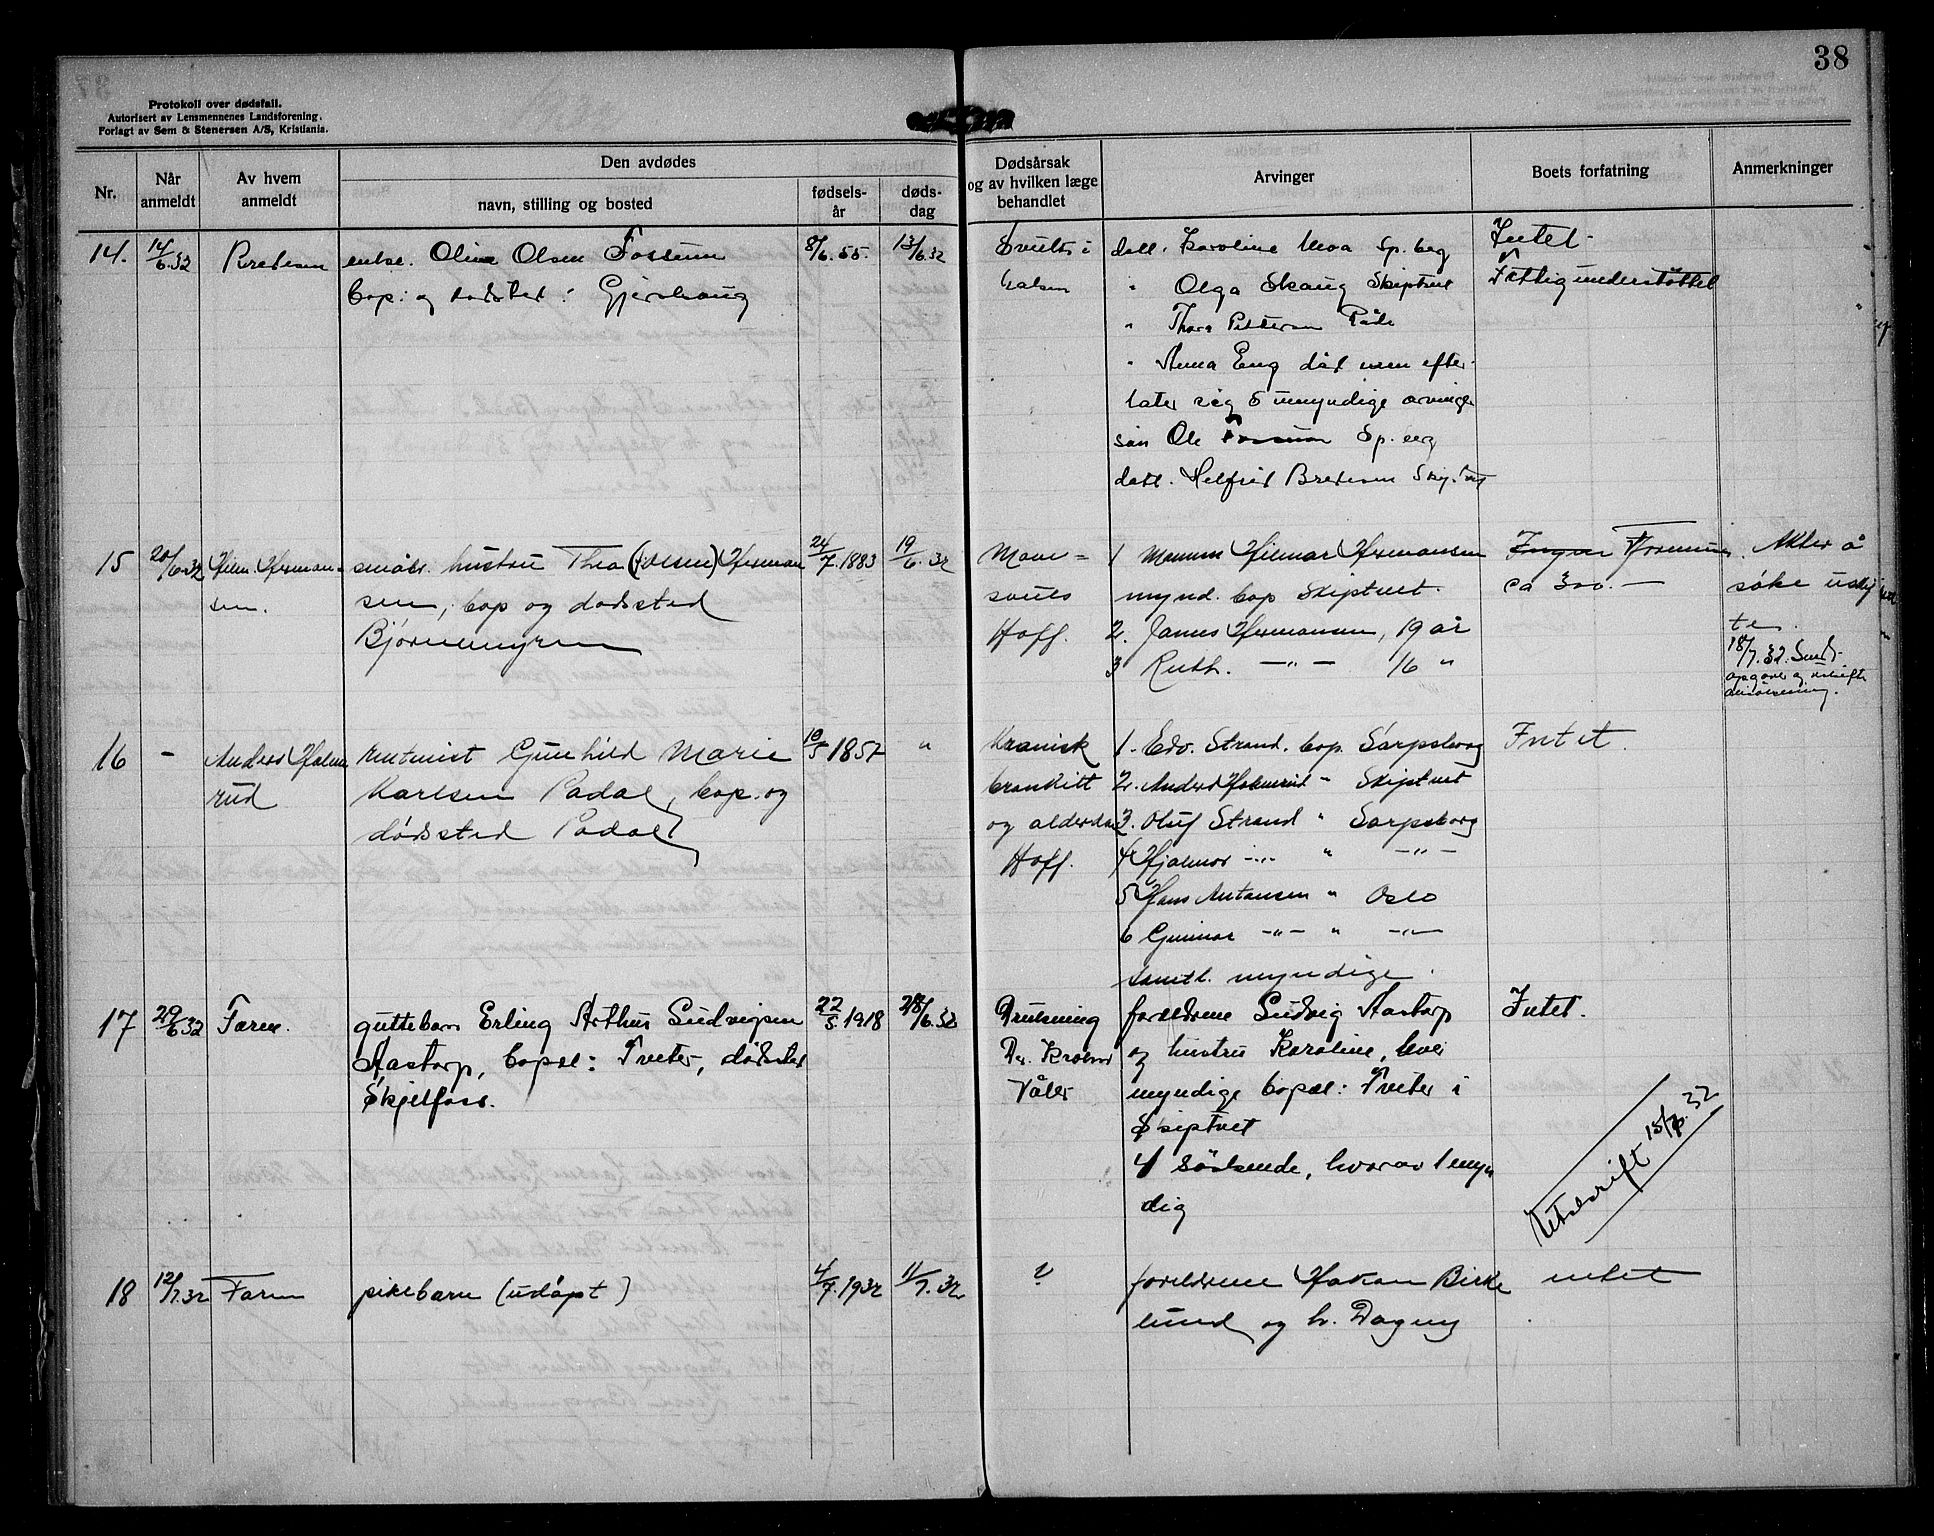 38
Protokoll over dødsfall.
Autorisert av Lensmennenes Landsforening.
Forlagt av Sem & Stenersen A/S, Kristiania.
Nr.
Når anmeldt
Av hvem anmeldt
Den avdødes
navn, stilling og bosted
fødsels-år
døds-dag
Dødsårsak og av hvilken læge behandlet
Arvinger
Boets forfatning
Anmerkninger
14. 14/6.32 Bredesen enke. Oline Olsen Fossum 8/6.55. 13/6.32
bop: og dødsted: Gjershaug
Svulst i
halsen
datt. Karoline Moa Sp.beg
" Olga Skaug Skiptvet
" Thora Pettersen Råde
" Anna Eng død men efter-
later sig 5 umyndige arvinger
søn Ole Fossum Sp.berg
datt. Helfrid Bredesen Skiptvet
Intet.
Fattigunderstøttet
15 20/6.32 Hilm. Herman-
sen.
småbr. hustru Thea (Olsen) Herman 24/7.1883 19/6.32
sen, bop og dødsted
Bjørnemyren
Mave=
svulst
Hoff.
1 Mannen Hilmar Hermansen
mynd. bop Skiptvet.
2. James Hermansen, 19 år
3 Ruth. —"— 16 "
Ingen Formue.
ca 300.—
Akter å
søke uskif
te.
18/7.32. Sendt
opgave og
16 - Anders Halme
rud
Gunhild Marie 10/5 1857 "
Karlsen Padal, bop. og
dødsted Padal
Kronisk
bronkitt
og alderdom
Hoff.
1. Edv. Strand. bop. Sarpsborg
2. Anders Holmerud " Skiptvet
3. Oluf Strand " Sarpsborg
4 Hjalmar —"— " —"—
5 Hans Antonsen " Oslo
6 Gunnar —"— " —"—
samtl. myndige.
Intet.
17 29/6.32 Faren. guttebarn Erling Arthur Ludvigsen 22/5.1918 28/6.32
Aastorp, bopæl: Tveter, dødsted
Skjelfoss.
Drukning
Dr.
Våler
foreldrene Ludvig Aastorp
og hustru Karoline, hver
myndige bopæl: Tveter i
Skiptvet
4 søskende, hvorav 1 myn
dig
Intet.
Utskrift 15/7.32
18 12/7.32 Faren pikebarn (udøpt) 4/7.1932 11/7.32
?
foreldrene Håkon Birke
lund og h. Dagny
intet